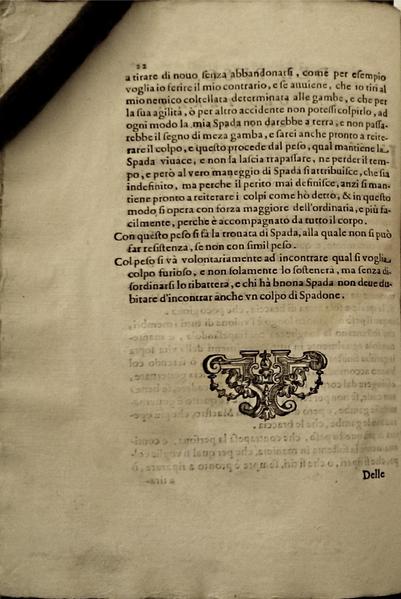 22
a tirare di nouo senza abbandonarsi, come per esempio
voglia io ferire il mio contrario, e se auuiene, che io tiri al
mio nemico coltellata determinata alle gambe, e che per
la sua agilità, ò per altro accidente non potessi colpirlo, ad
ogni modo la mia Spada non darebbe a terra, e non passa-
rebbe il segno di meza gamba, e sarei anche pronto a reite-
rare il colpo, e questo procede dal peso, qual mantiene la
Spada viuace, e non la lascia trapassare, ne perder il tem-
po, e però al vero maneggio di Spada si attribuisce, che sia
indefinito, ma perche il perito mai definisce, anzi si man-
tiene pronto a reiterare i colpi come hò detto, & in questo
modo si opera con forza maggiore dell'ordinaria, e più fa-
cilmente, perche è accompagnato da tutto il corpo.
Con questo peso si fà la tronata di Spada, alla quale non si può
far resistenza, se non con simil peso.
Col peso si và volontariamente ad incontrare qual si voglia
colpo furioso, e non solamente lo sostenerà, ma senza di-
sordinarsi lo ribatterà, e chi hà bnona Spada non deue du-
bitare d'incontrar anche vn colpo di Spadone.
Delle